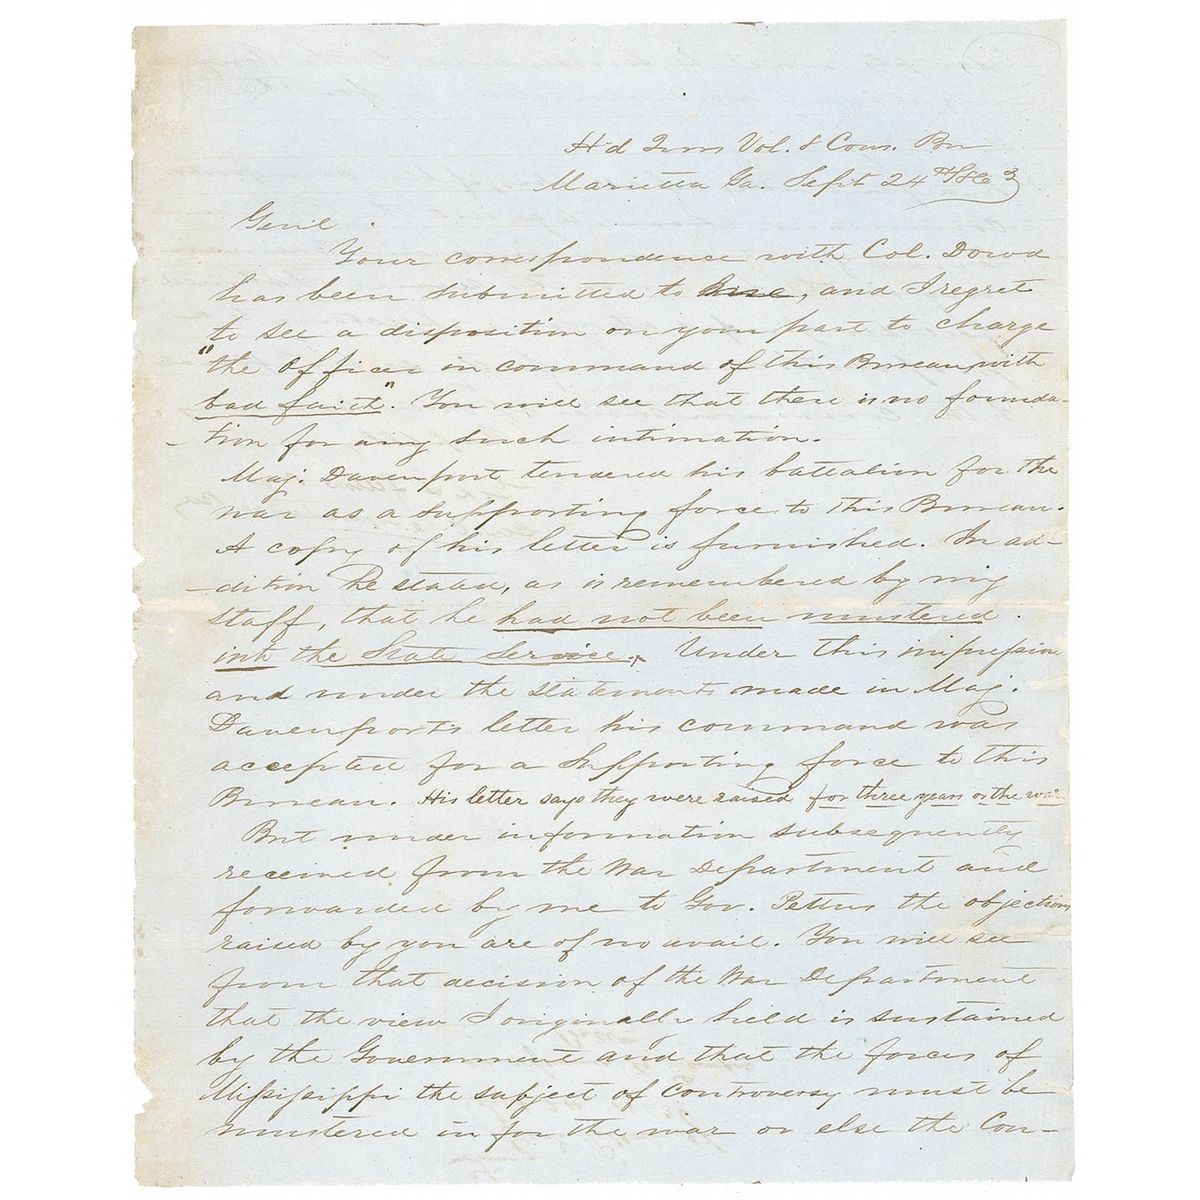 Hd Qrs Vol. & Cons. Bu
Marietta Ga. Sept 24th 1863
Genl
Your correspondence with Col. Dowd
has been submitted to me, and I regret
to see a disposition on your part to charge
"the Officer in command of this Bureau with
bad faith". You will see that there is no founda-
-tion for any such intimation.
Maj. Davenport tendered his battalion for the
war as a supporting force to this Bureau.
A copy of his letter is furnished. In ad-
-dition he stated, as is remembered by my
staff, that he had not been mustered
into the State service. Under this impression
and under the statements made in Maj.
Davenport's letter his command was
accepted for a Supporting force to this
Bureau. His letter says they were raised for three years or the war
But under information subsequently
received from the War Department and
forwarded by me to Gov. Pettus the objections
raised by you are of no avail. You will see
from that decision of the War Department
that the view I originally held is sustained
by the Government and that the forces of
Mississippi the subject of controversy must be
mustered in for the war or else the Con-